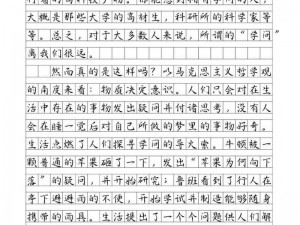 大概那些大学的高材生，科研所的科学家等
等。总之，对于大多数人来说，所谓的“学问”
离我们很远。
然而真的是这样吗？以马克思主义哲学观
的角度来看：物质决定意识。人们只会对在生
活中存在的事物发出疑问并付诸思考，没有人
会在睡一觉后对自己所做的梦里的事物好奇。
生活点燃了人们探寻学问的导火索。牛顿被一
颗普通的苹果砸了一下，发出“苹果为何向下
落”的疑问，并开始研究；鲁班看到了行人在
亭下避雨而的不便，开始学试并制造能够随身
携带的雨具。生活提出了一个个问题供人们解